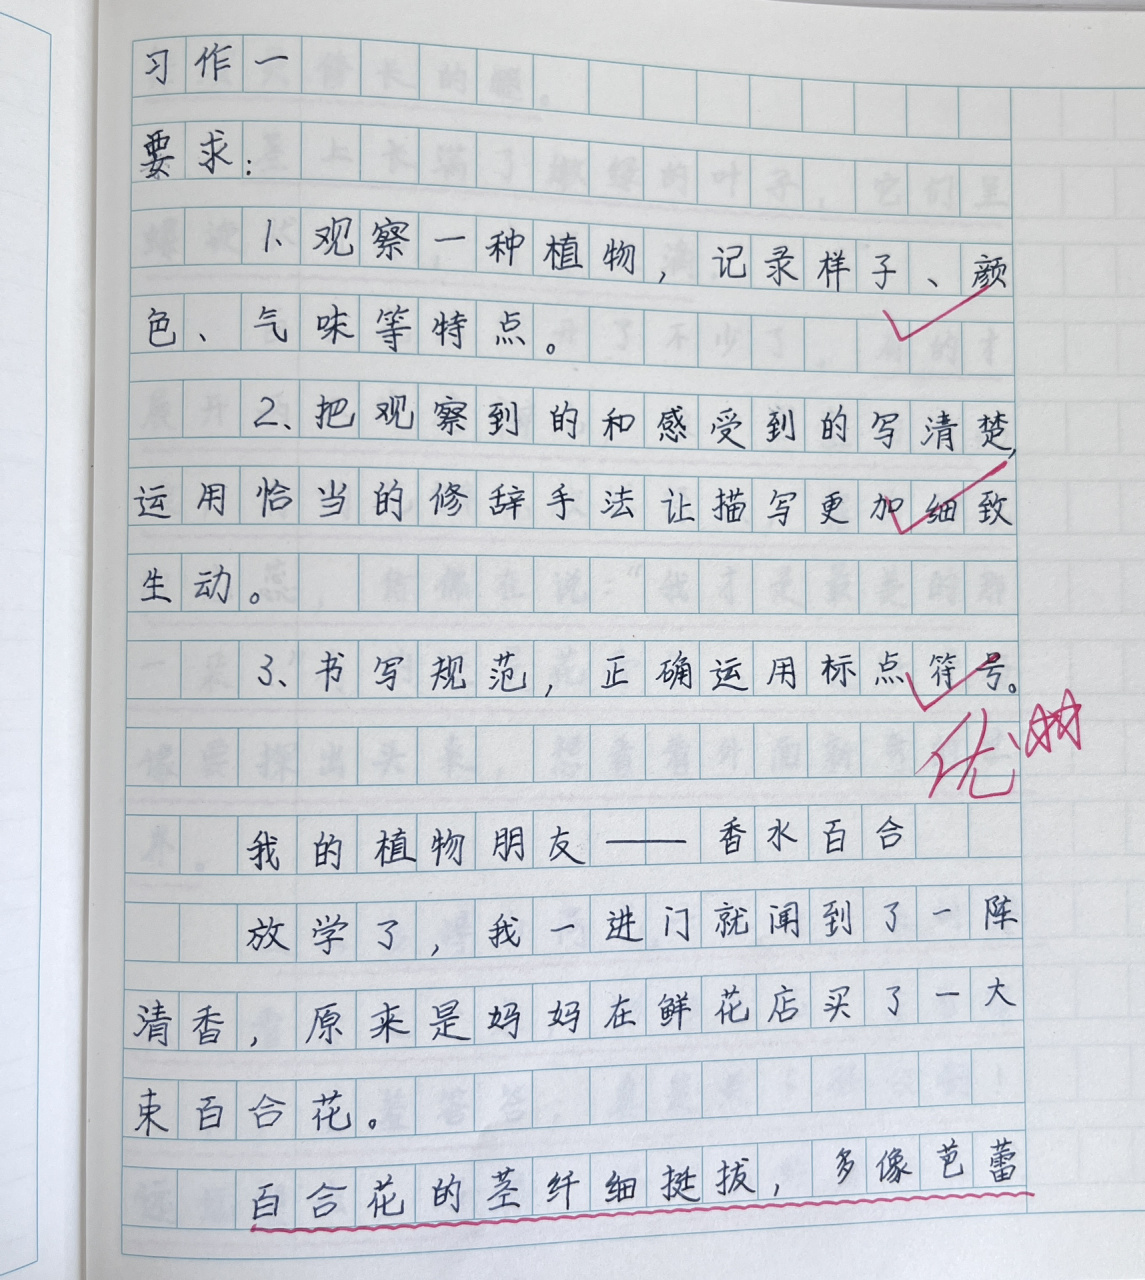 习作一
要求：
1、观察一种植物，记录样子、颜
色、气味等特点。
2、把观察到的和感受到的写清楚，
运用恰当的修辞手法让描写更加细致
生动。
3、书写规范，正确运用标点符号。
优
我的植物朋友——香水百合
放学了，我一进门就闻到了一阵
清香，原来是妈妈在鲜花店买了一大
束百合花。
百合花的茎纤细挺拔，多像芭蕾